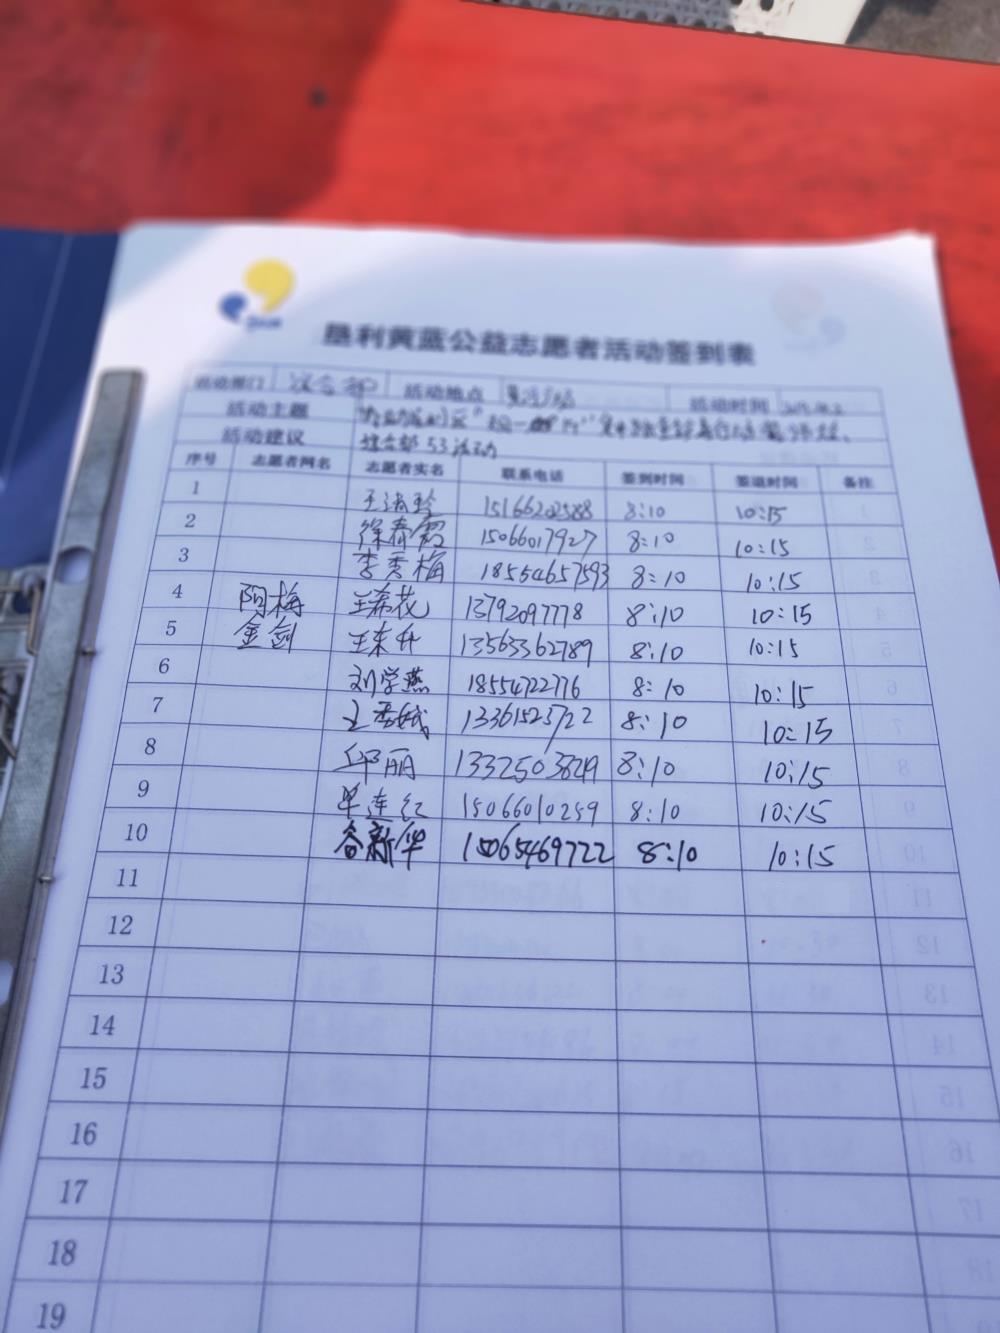 垦利黄蓝公益志愿者活动签到表
活动部门 综合部 活动地点 活动时间
活动主题
活动建议 综合部53活动
序号 志愿者网名 志愿者实名 联系电话 签到时间 签退时间 备注
1 王清玲 15166202588 8:10 10:15
2 徐春霞 15066017927 8:10 10:15
3 李秀梅 18554657593 8:10 10:15
4 阿梅 王希花 13792097778 8:10 10:15
5 金剑 王东升 13563362789 8:10 10:15
6 刘学燕 18554722776 8:10 10:15
7 王秀娥 13361525722 8:10 10:15
8 邱丽 13325038249 8:10 10:15
9 单连红 15066010259 8:10 10:15
10 谷新华 15065469722 8:10 10:15
11
12
13
14
15
16
17
18
19